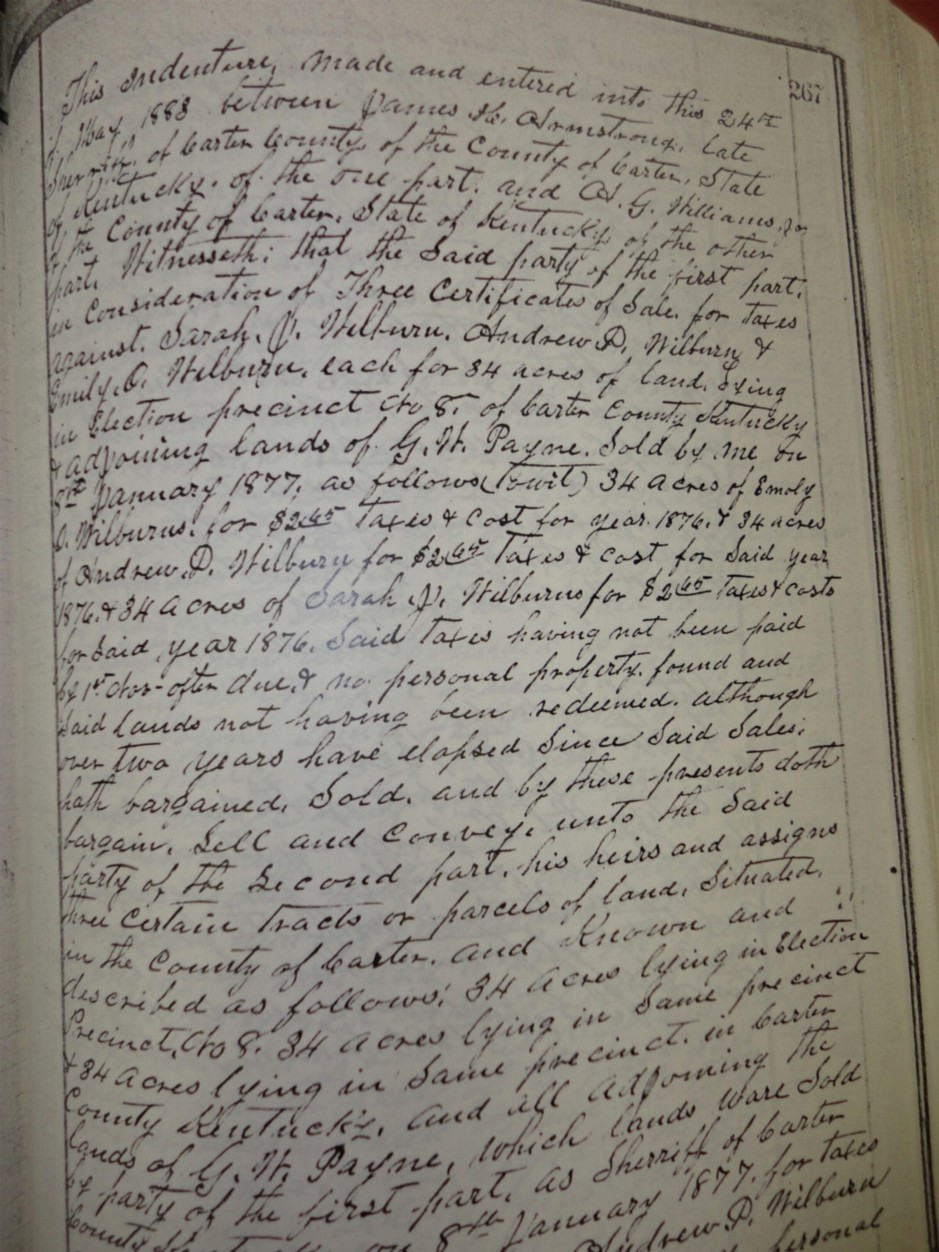 267
This Indenture, made and entered into this 24th
of May 1883 between James H. Armstrong, late
Sherriff, of Carter County, of the County of Carter, State
of Kentucky. of the one part. and A. G. Williams,
of the County of Carter. State of Kentucky of the other
part. Witnesseth: that the Said party of the first part.
in Consideration of Three Certificates of Sale. for taxes
against. Sarah. J. Wilburn. Andrew P. Wilburn &
Emily. O. Wilburn. each for 34 acres of land. Lying
in Election precinct No 8. of Carter County Kentucky
& adjoining lands of G. W. Payne. Sold by me on
8th January 1877, as follows (Towit) 34 acres of Emoly
O. Wilburns. for $2.65 Taxes & Cost for year 1876. & 34 acres
of Andrew. P. Wilburn for $2.65 Taxes & Cost for Said year
1876. & 34 acres of Sarah J. Wilburns for $2.65 Taxes & Costs
for Said year 1876. Said Taxes having not been paid
by 1st Nov- after due, & no personal property. found and
Said lands not having been redeemed. although
over two years have elapsed Since Said Sales;
hath bargained, Sold. and by these presents doth
bargain. Sell and Convey. unto the Said
party of the Second part. his heirs and assigns
three Certain Tracts or parcels of land. Situated.
in the County of Carter. and Known and
described as follows: 34 acres lying in Election
Precinct. No 8. 34 acres lying in Same precinct
& 34 acres lying in Same precinct. in Carter
County Kentucky. and all adjoining the
lands of G. W. Payne, which lands ware Sold
by party of the first part. as Sherriff of Carter
County on 8th January 1877. for taxes
Andrew P. Wilburn
personal